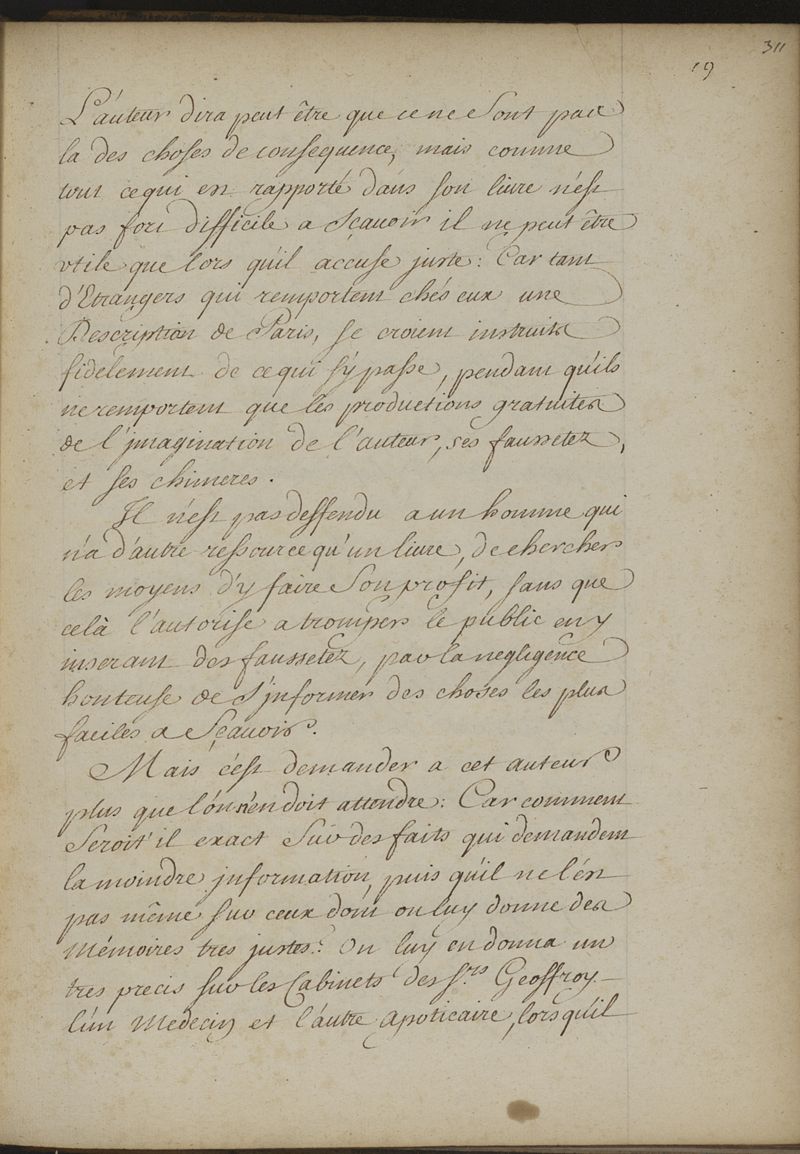 311
19
L'áuteur dira peut être que ce ne Sont pas
la des choses de consequence, mais comme
tout ce qui est rapporté dans son livre n'est
pas fort difficile a Sçavoir il ne peut être
utile que lors qu'il accuse juste: Car tant
d'Etrangers qui remportent chés eux une
Description de Paris, se croient instruits
fidelement de ce qui s'y passe, pendant qu'ils
ne remportent que les productions gratuites
de l'jmagination de l'auteur, ses faussetez,
et ses chimeres.
Il n'est pas deffendu a un homme qui
n'a d'autre ressource qu'un livre, de chercher
les moyens d'y faire Son profit, sans que
celà l'autorise a tromper le public en y
inserant des faussetez, par la negligence
honteuse de s'jnformer des choses les plus
faciles a Sçavoir.
Mais c'est demander a cet auteur
plus que l'ón n'en doit attendre: Car comment
Seroit'il exact Sur des faits qui demandent
la moindre jnformation, puis qu'il ne l'est
pas même sur ceux dont on luy donne des
Mémoires tres justes? On luy en donna un
tres precis sur les Cabinets des Srs. Geoffroy
l'un Medecin et l'áutre Apoticaire, lors qu'il